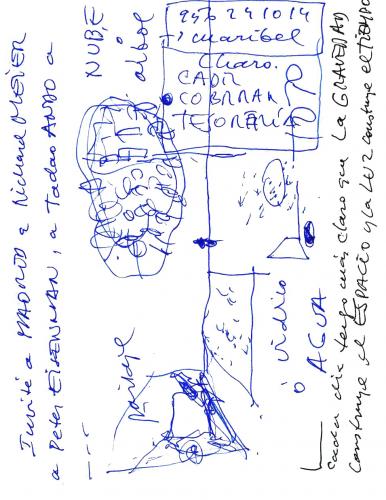 Invité a MADRID a Richard MEIER
a Peter EISENMAN, a Tadao ANDO a
NUBE
o
árbol
T: maribel
Charo.
CADIZ
COBRAR
TESORERIA
paisaje
o Vidrio
o AGUA
cada día tengo más claro que LA GRAVEDAD
construye el ESPACIO y LA LUZ construye el TIEMPO